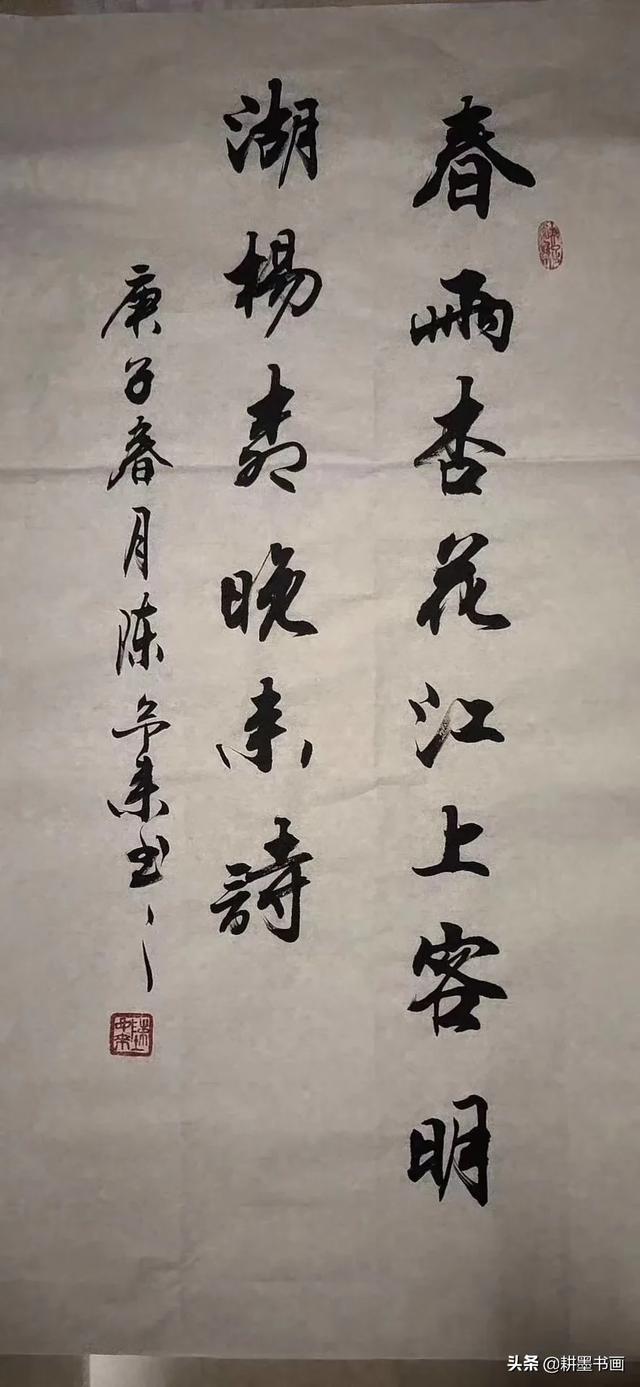 春雨杏花江上客明
湖楊柳晚来詩
庚子春月陳予来书
头条 @耕墨书画